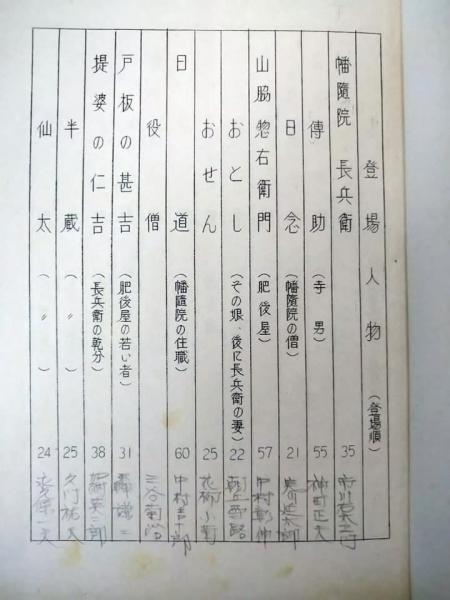 登場人物（登場順）
幡隨院 長兵衛 35 市川
傳助（寺男） 55 神田正夫
日念（幡隨院の僧） 21
山脇惣右衛門（肥後屋） 57 中村彰伸
おとし（その娘、後に長兵衛の妻） 22
おせん 25 花柳小菊
日道（幡隨院の住職） 60 中村吉十郎
役僧
戸板の甚吉（肥後屋の若い者） 31
提婆の仁吉（長兵衛の乾分） 38
半蔵（〃） 25 久門祐夫
仙太（〃） 24